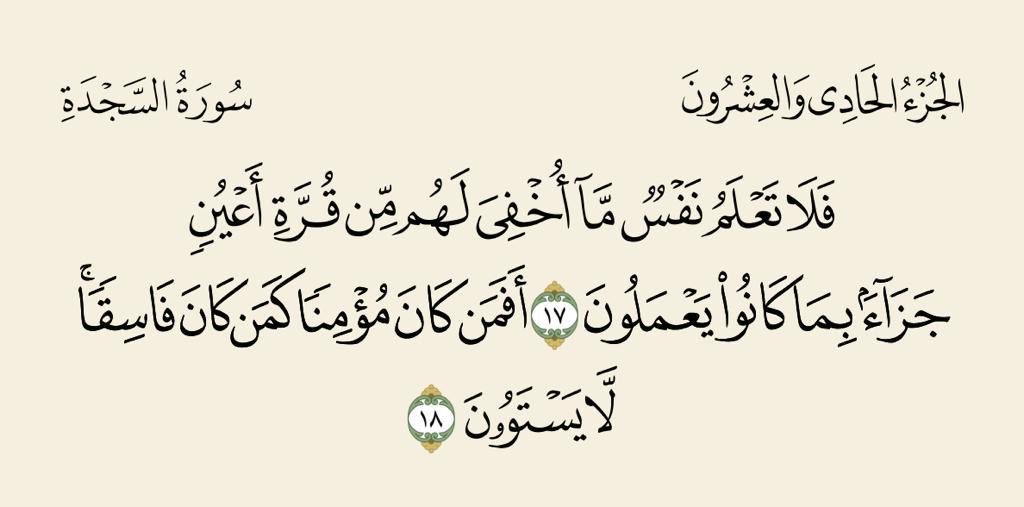 الجُزْءُ الحَادِى وَالعِشْرُونَ سُورَةُ السَّجْدَةِ
فَلَا تَعْلَمُ نَفْسٌ مَّآ أُخْفِىَ لَهُم مِّن قُرَّةِ أَعْيُنٍ
جَزَآءًۢ بِمَا كَانُوا۟ يَعْمَلُونَ ١٧ أَفَمَن كَانَ مُؤْمِنًا كَمَن كَانَ فَاسِقًا ۚ
لَّا يَسْتَوُۥنَ ١٨